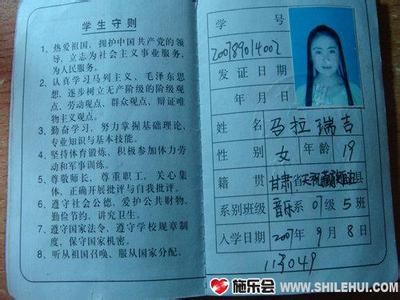 学生守则
1、热爱祖国，拥护中国共产党的领
导，立志为社会主义事业服务，
为人民服务。
2、认真学习马列主义、毛泽东思
想，逐步树立无产阶级的阶级观
点、劳动观点、群众观点、辩证唯
物主义观点。
3、勤奋学习，努力掌握基础理论，专
业知识与基本技能。
4、坚持体育锻炼，积极参加体力劳
动和军事训练。
5、尊敬师长，尊重职工，团结同
志，正确开展批评与自我批评。
6、遵守社会公德，爱护公共财物，
勤俭节约，讲究卫生。
7、遵守国家法令，遵守学校规章制
度，保守国家机密。
8、听从祖国召唤，服从国家分配。
学 号
200789014002
发证日期
年 月 日
姓名 马拉瑞吉
性别 女 年龄 19
籍贯 甘肃省 县
系别班级 音乐系 级 5 班
入学日期 2007年9月8日
113049
施乐会
WWW.SHILEHUI.COM